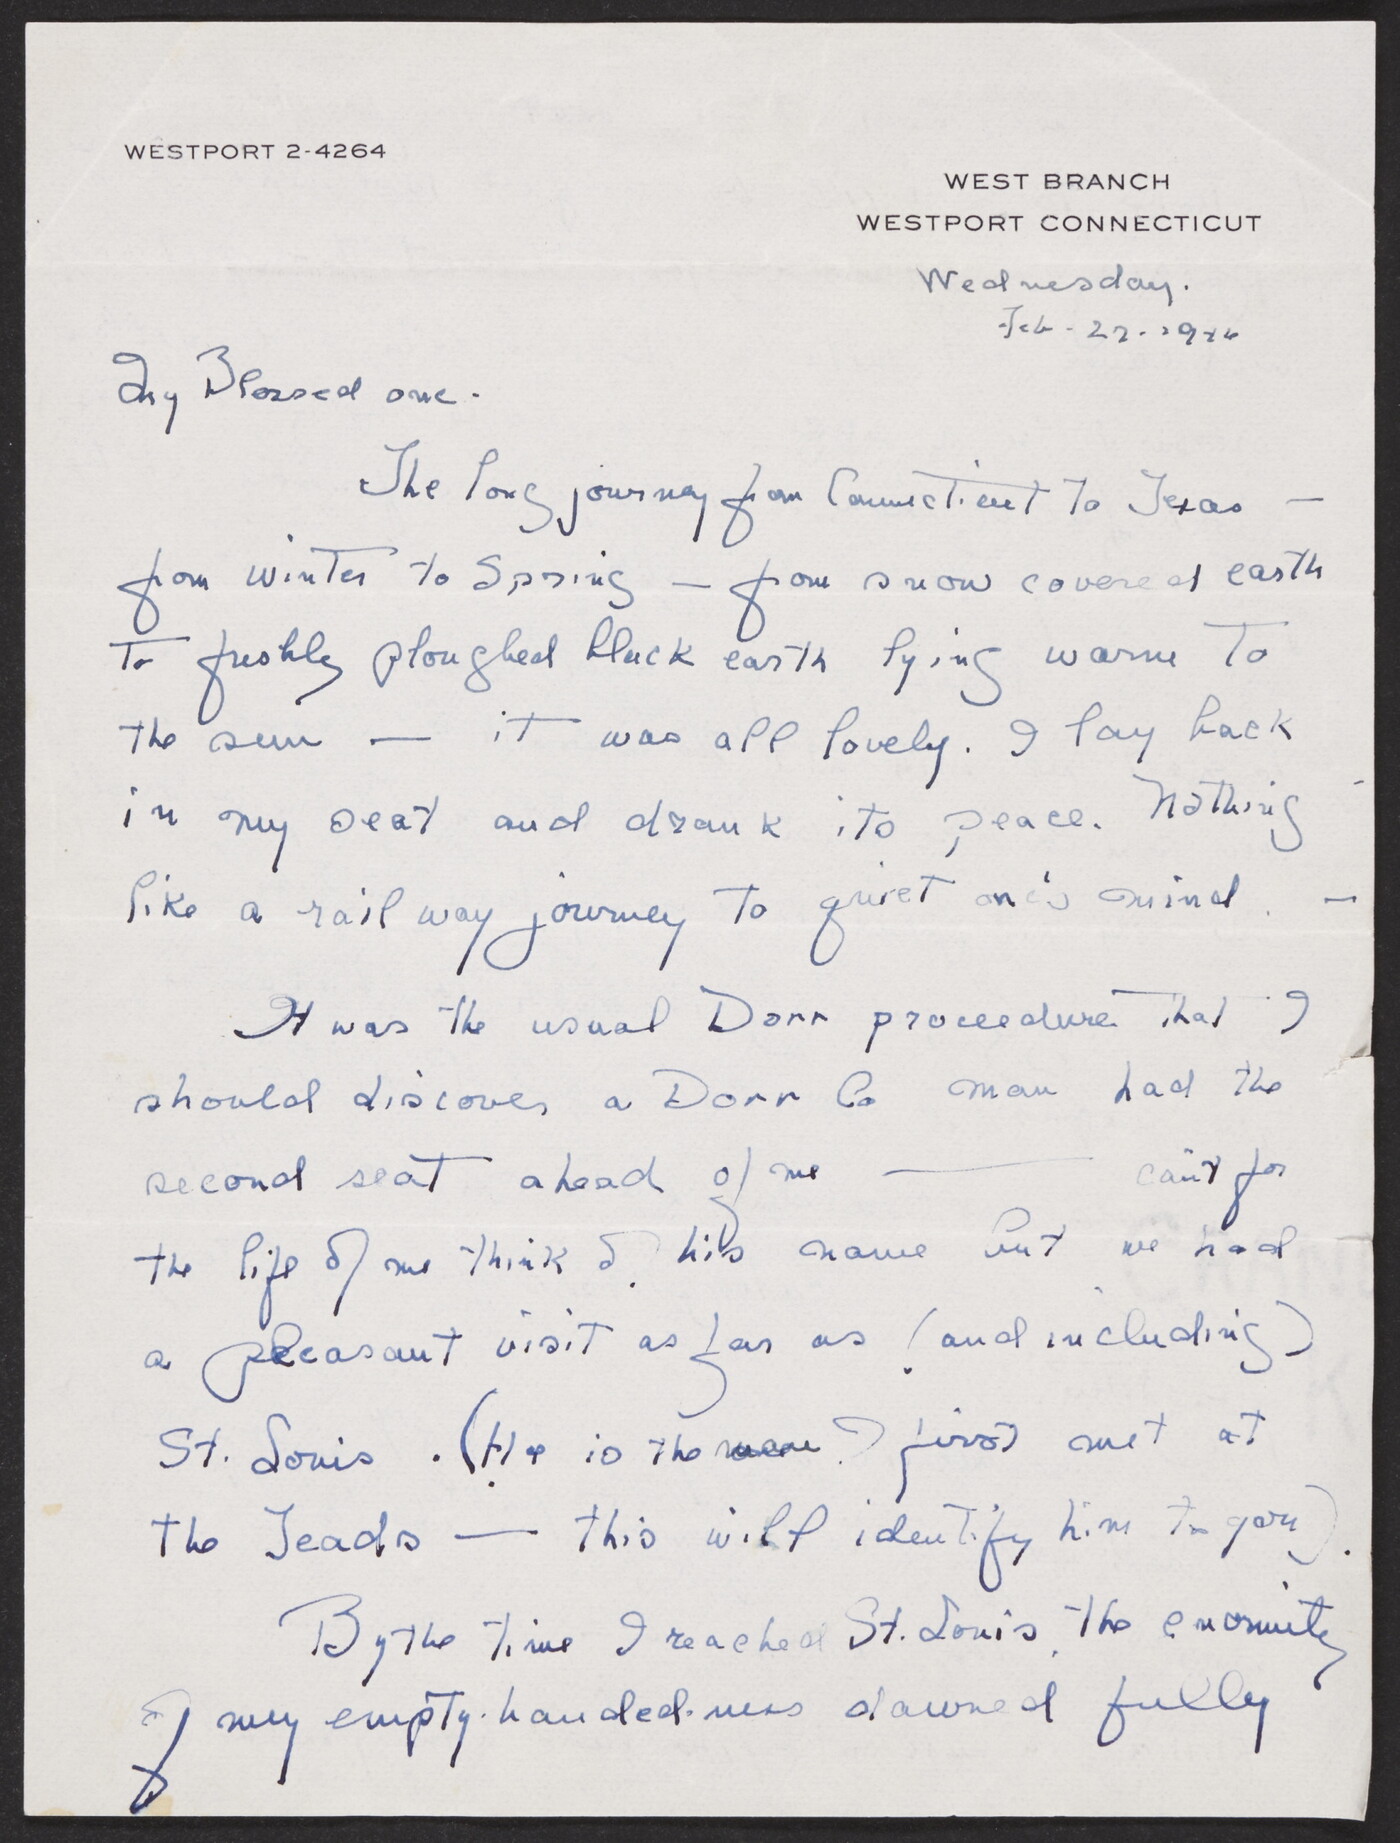 WESTPORT 2-4264
WEST BRANCH
WESTPORT CONNECTICUT
Wednesday.
Feb - 27 -
My Blessed one.
The long journey from Connecticut to Texas —
from winter to Spring — from snow covered earth
to freshly ploughed black earth lying warm to
the sun — it was all lovely. I lay back
in my seat and drank its peace. Nothing
like a railway journey to quiet one's mind. —
It was the usual Dorr proceedure that I
should discover a Dorr Co man had the
second seat ahead of me — can't for
the life of me think of his name but we had
a pleasant visit as far as (and including)
St. Louis. (He is the man I first met at
the Teads — this will identify him to you).
By the time I reached St. Louis, the enormity
of my empty-handed-ness dawned fully